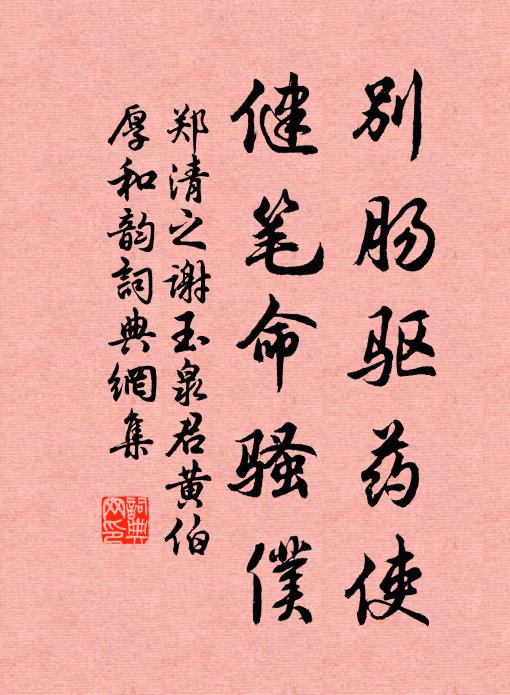 别肠驱药使
健笔命骚仆
郑清之谢玉泉君黄伯
厚和韵詞典網集
詞典網印